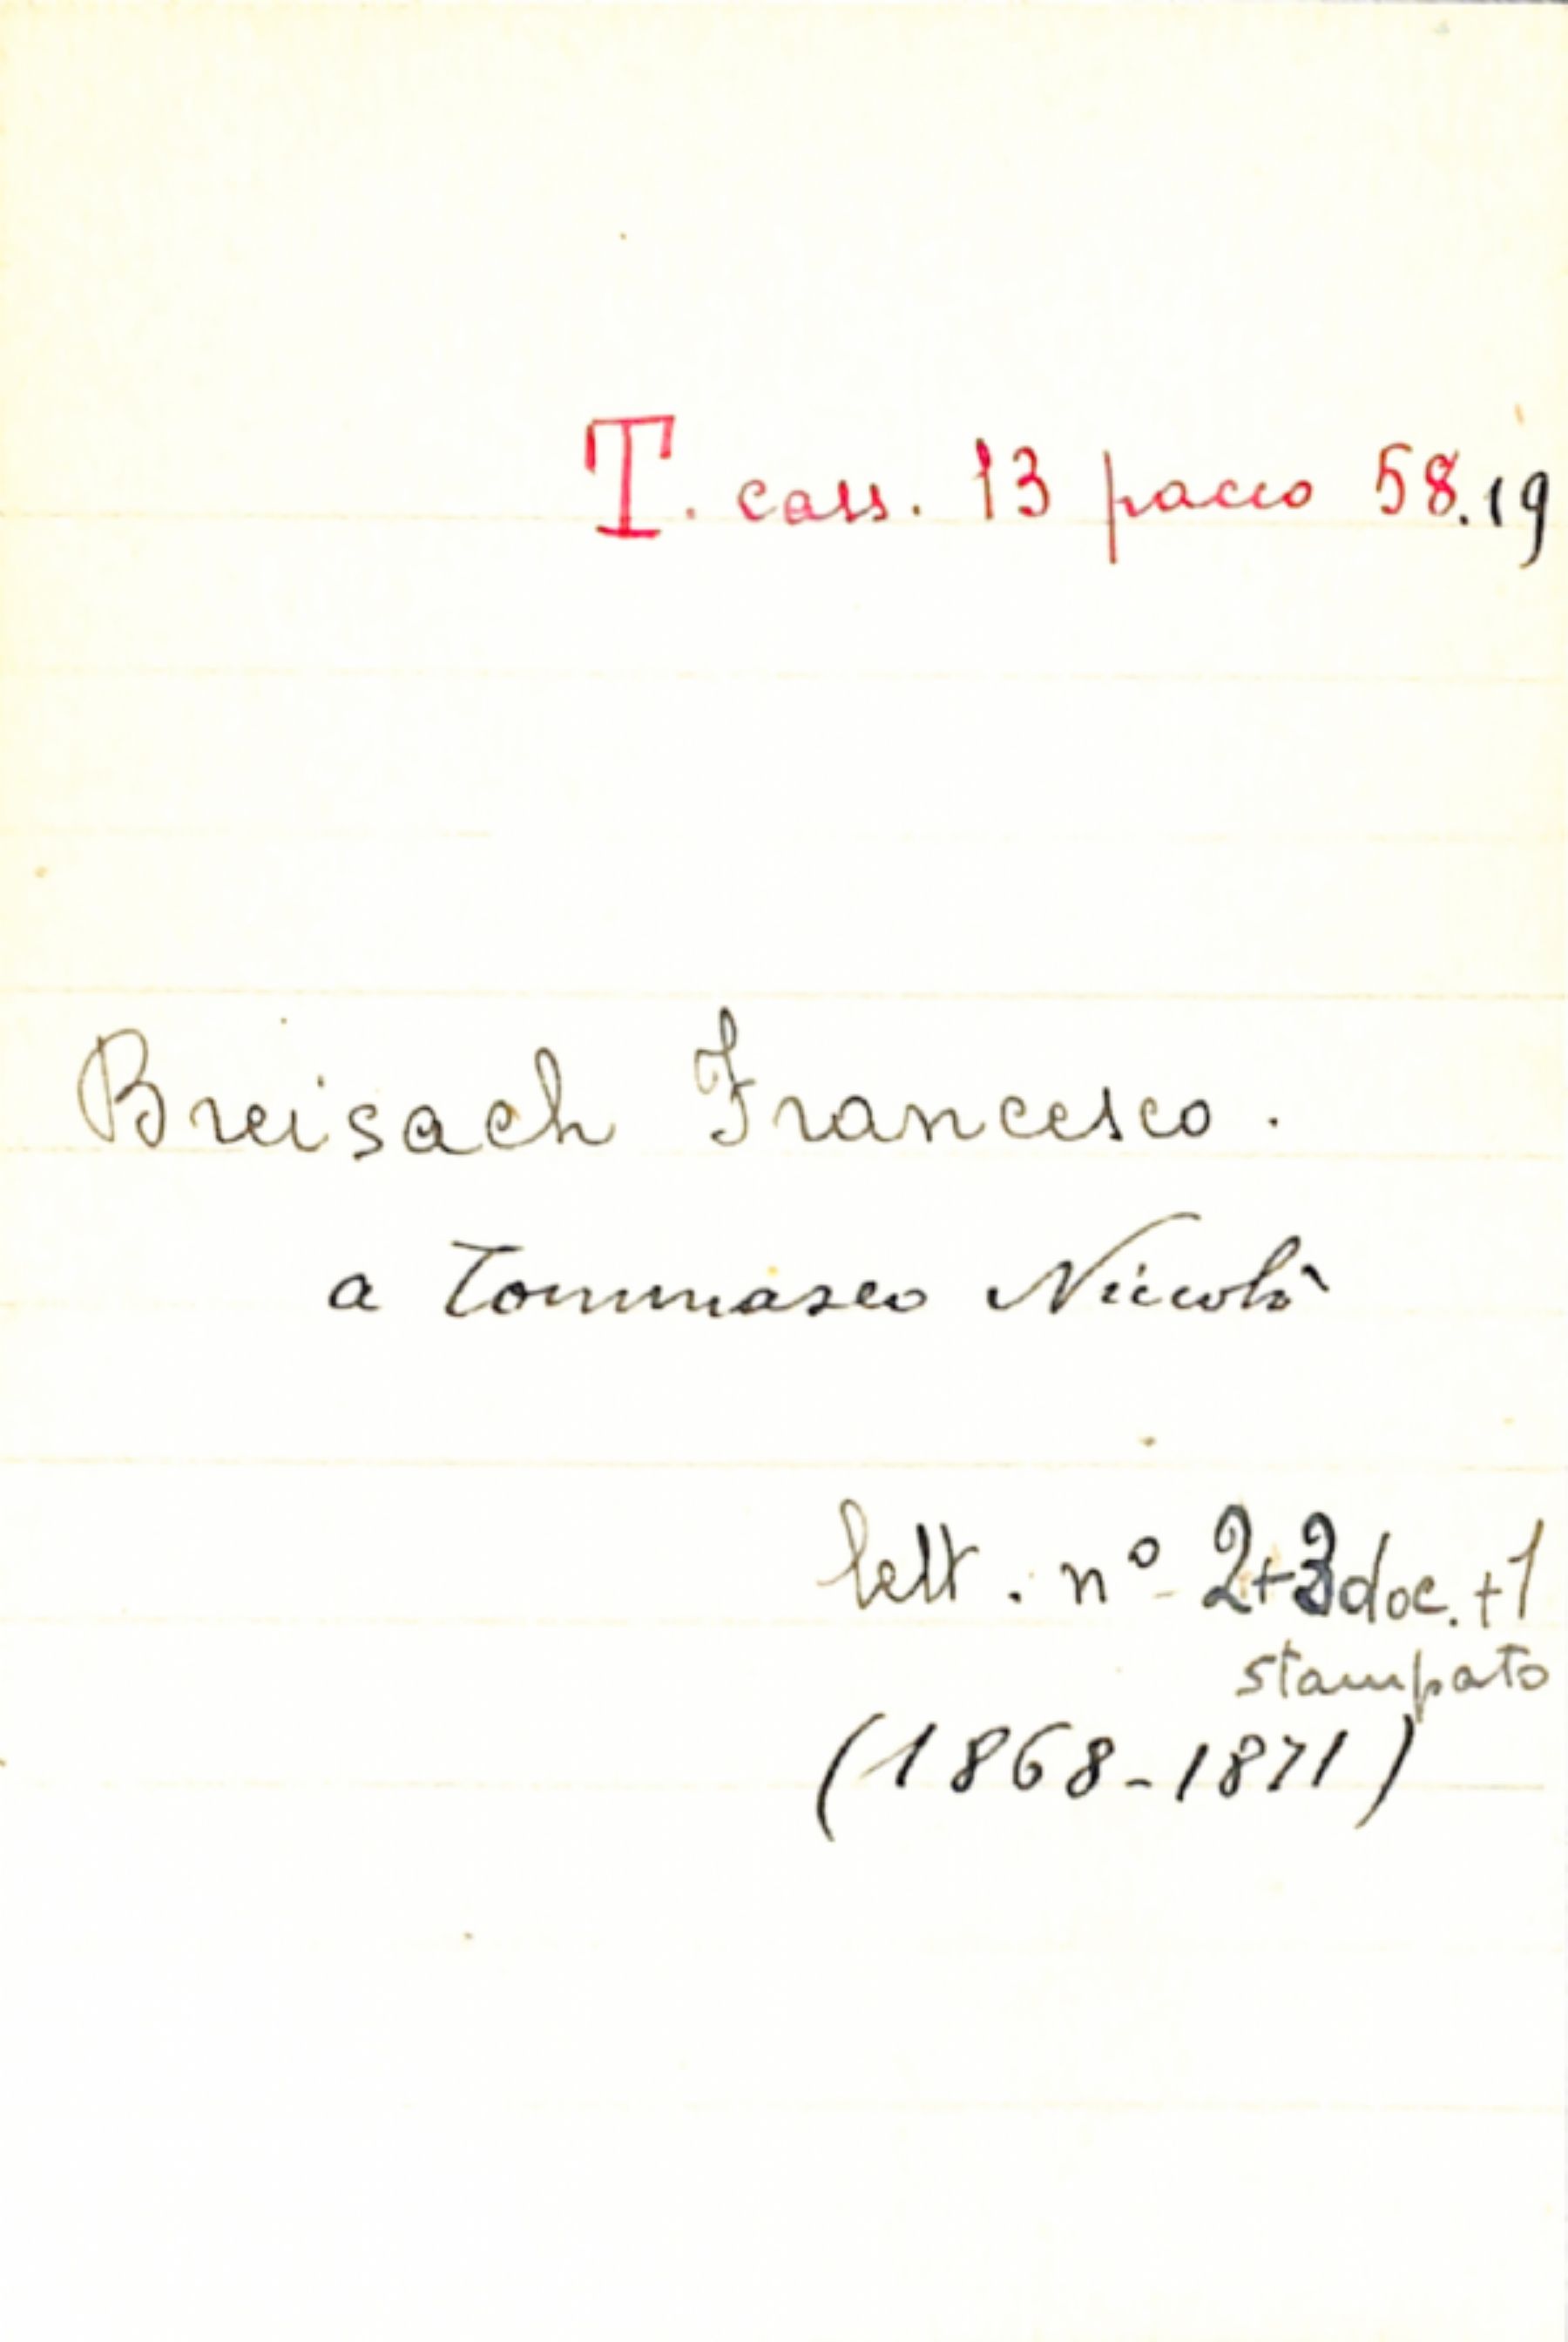 T. cass. 13 pacco 58.19
Breisach Francesco.
a Tommaseo Niccolò
lett. n° 2+3doc.+1
stampato
(1868-1871)